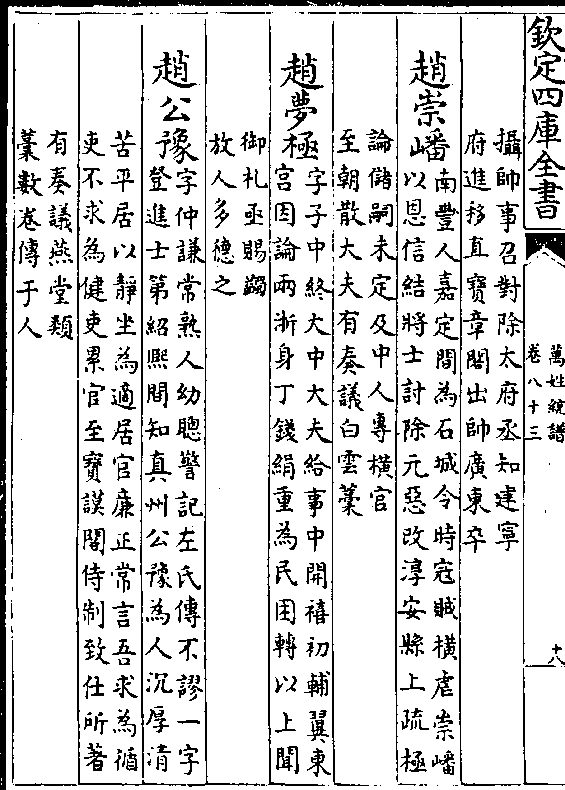 欽定四庫全書
萬姓統譜
卷八十三
十八
攝帥事召對除太府丞知建寧
府進移直寶章閣出帥廣東卒
趙崇嶓
南豐人嘉定間為石城令時寇賊橫虐崇嶓
以恩信結將士討除元惡改淳安縣上疏極
論儲嗣未定及中人專橫官
至朝散大夫有奏議白雲藁
趙夢極
字子中終大中大夫給事中開禧初輔翼東
宮因論兩浙身丁錢絹重為民困轉以上聞
御札亟賜蠲
放人多德之
趙公豫
字仲謙常熟人幼聰警記左氏傳不謬一字
登進士第紹熙間知真州公豫為人沉厚清
苦平居以靜坐為適居官廉正常言吾求為循
吏不求為健吏累官至寶謨閣待制致仕所著
有奏議燕堂類
藁數卷傳于人